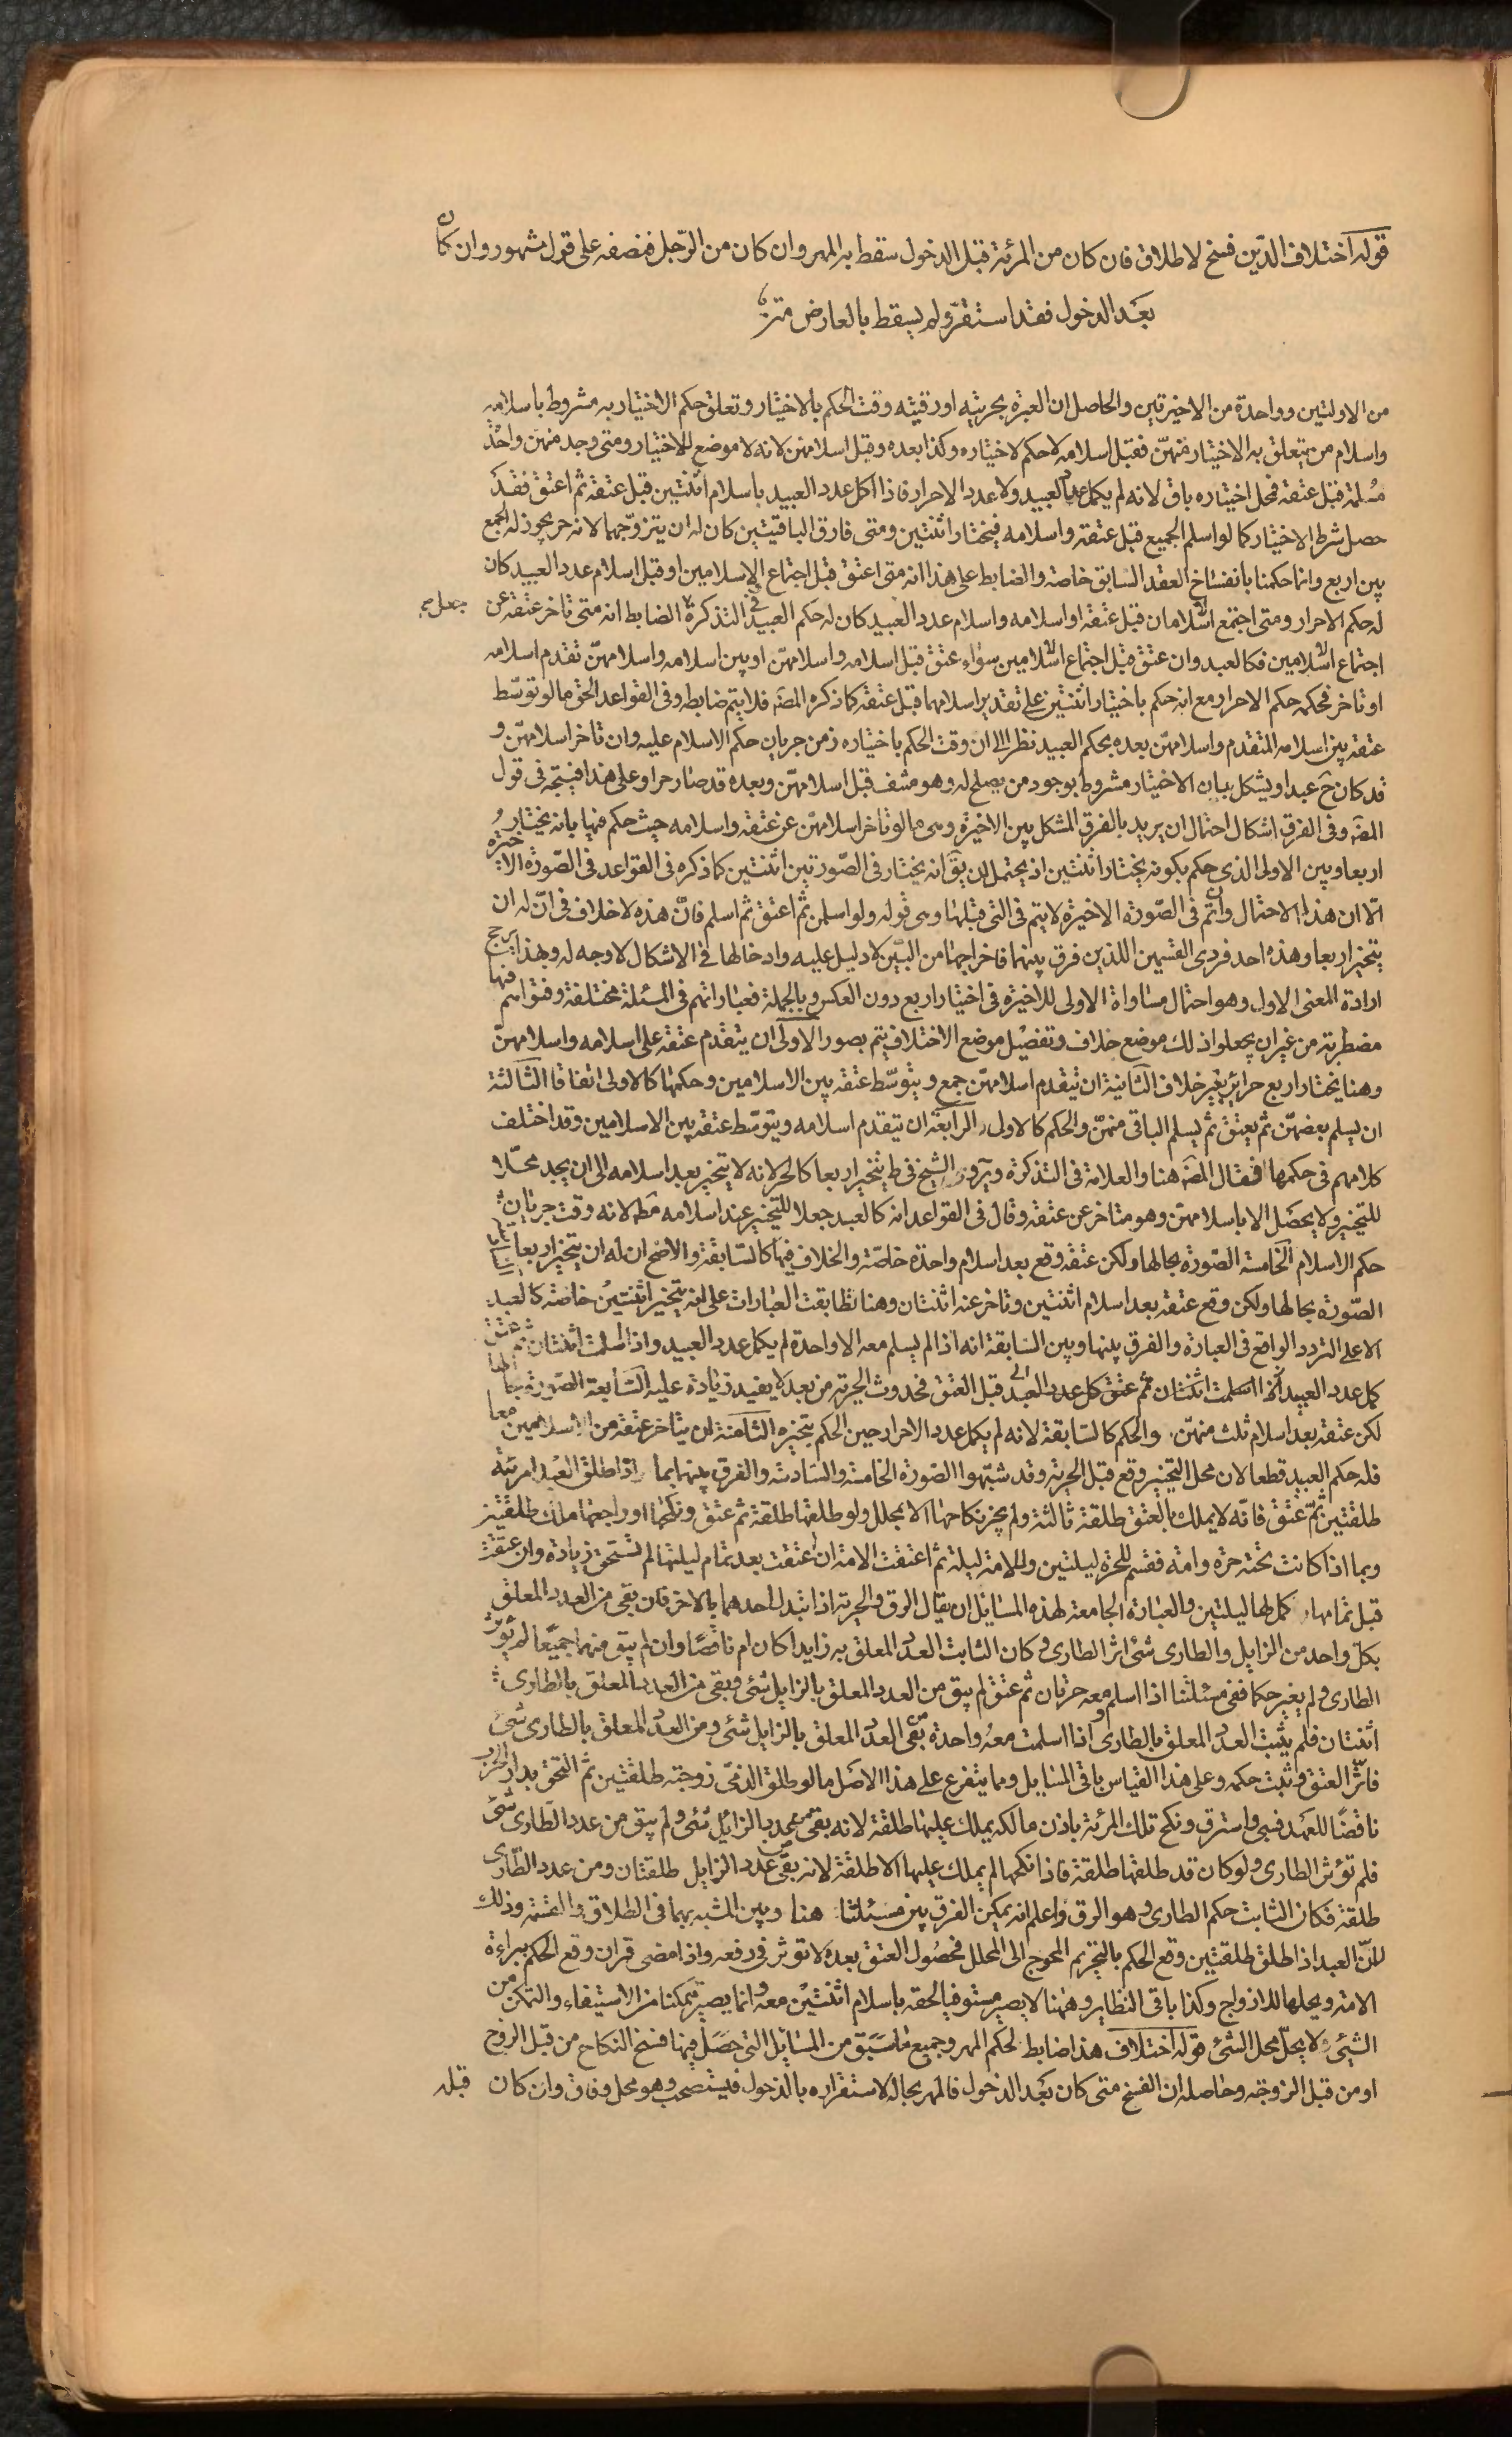 قوله اختلاف الدّين فسخ لا طلاق فان كان من المرئة قبل الدخول سقط به المهر وان كان من الرّجل فنصفه على قول مشهور وان كان
بعد الدخول فقد استقرّ ولم يسقط بالعارض
من الاولتين وواحدة من الاخيرتين والحاصل ان العبرة بحريته او رقيته وقت الحكم بالاختيار وتعلق حكم الاختيار به مشروط باسلامه
واسلام من يتعلق به الاختيار منهنّ فقبل اسلامه لا حكم لاختياره وكذا بعده وقبل اسلامهن لانه لا موضع للاختيار ومتى وجد منهن واحدة
مسلمة قبل عتقه فحل اختياره باق لانه لم يكمل عدد العبيد ولا عدد الاحرار فاذا اكمل عدد العبيد باسلام اثنتين قبل عتقه ثم اعتق فقد
حصل شرط الاختيار كما لو اسلم الجميع قبل عتقه واسلامه فيختار اثنتين ومتى فارق الباقيتين كان له ان يتزوّجهما لانه حر يجوز له الجمع
بين اربع وانما حكمنا بانفساخ العقد السابق خاصة والضابط على هذا انه متى اعتق قبل اجتماع الاسلامين او قبل اسلام عدد العبيد كان
له حكم الاحرار ومتى اجتمع اسلامان قبل عتقه او اسلامه واسلام عدد العبيد كان له حكم العبيد وفي التذكرة جعل الضابط انه متى تاخر عتقه عن
اجتماع اسلامين فكالعبد وان عتق قبل اجتماع اسلامين سواء عتق قبل اسلامه واسلامهنّ او بين اسلامه واسلامهنّ تقدم اسلامه
او تاخر فحكمه حكم الاحرار مع انه حكم باختيار اثنتين على تقدير اسلامهما قبل عتقه كما ذكره المصَ فلا يتم ضابطه وفى القواعد الحق ما لو توسّط
عتقه بين اسلامه المتقدم واسلامهنّ بعده بحكم العبيد نظرا الى ان وقت الحكم باختياره زمن جريان حكم الاسلام عليه وان تاخر اسلامهنّ و
قد كان حَ عبدا ويشكل بان الاختيار مشروط بوجود من يصلح له وهو منتف قبل اسلامهنّ وبعده قد صار حرا وعلى هذا فيتجه فى قول
المصَ وفى الفرق اشكال احتمال ان يريد بالفرق المشكل بين الاخيرة وهى ما لو تاخر اسلامهنّ عن عتقه واسلامه حيث حكم فيها بانه يختار
اربعا وبين الاولى الذى حكم بكونه يختار اثنتين اذ يحتمل ان يقَ انه يختار فى الصّورتين اثنتين كما ذكره فى القواعد فى الصّورة الاخيرة
الّا ان هذا الاحتمال وان تم فى الصّورة الاخيرة لا يتم فى التى قبلها وهى قوله ولو اسلمن ثم اعتق ثم اسلم فانّ هذه لا خلاف فى انّ له ان
يتخير اربعا وهذه احد فردى القسمين اللذين فرق بينهما فاخراجها من البيّن لا دليل عليه وادخالها فى الاشكال لا وجه له وبهذا يرجح
ارادة المعنى الاول وهو احتمال مساواة الاولى للاخيرة فى اختيار اربع دون العكس وبالجملة فعباراتهم فى المسئلة مختلفة وفتواهم فيها
مضطربة من غير ان يجعلوا ذلك موضع خلاف وتفصيل موضع الاختلاف يتم بصور الاولى ان يتقدم عتقه على اسلامه واسلامهنّ
وهنا يختار اربع حرائر بغير خلاف الثانية ان تيقدم اسلامهنّ جمع ويتوسّط عتقه بين الاسلامين وحكمها كالاولى اتفاقا الثالثة
ان يسلم بعضهنّ ثم يعتق ثم يسلم الباقى منهنّ والحكم كالاولى الرابعة ان يتقدم اسلامه ويتوسّط عتقه بين الاسلامين وقد اختلف
كلامهم فى حكمها فقال المصَ هنا والعلامة فى التذكرة والشيخ فى ط يتخير اربعا كالحر لانه لا يتخير بعد اسلامه الى ان يجد محلا
للتخيير ولا يحصل الا باسلامهنّ وهو متاخر عن عتقه وقال فى القواعد انه كالعبد جعلا للتخيير عند اسلامه مَطَ لانه وقت جريان
حكم الاسلام الخامسة الصّورة بحالها ولكن عتقه وقع بعد اسلام واحدة خاصّة والخلاف فيها كالسّابقة والاصح ان له ان يتخير اربعا
الصّورة بحالها ولكن وقع عتقه بعد اسلام اثنتين وتاخر عنه اثنتان وهنا تطابقت العبارات على انه يتخير اثنتين خاصّة كالعبد
الا على التردد الواقع فى العبارة والفرق بينها وبين السّابقة انه اذا لم يسلم معه الا واحدة لم يكمل عدد العبيد واذا اسلمت اثنتان ثم عتق
كمل عدد العبيد اذا اسلمت اثنتان ثم عتق كل عدد العبد قبل العتق فحدوث الحرية من بعد لا يفيد زيادة عليه السّابعة الصّورة بحالها
لكن عتقه بعد اسلام ثلث منهنّ والحكم كالسّابقة لانه لم يكمل عدد الاحرار حين الحكم بتخيره الثامنة ان يتاخر عتقه من الاسلامين معا
فله حكم العبيد قطعا لان محل التخيير وقع قبل الحرية وقد شبّهوا الصّورة الخامسة والسّادسة والفرق بينهما بما اذا طلق العبد امرئة
طلقتين ثمّ عتق فانّه لا يملك بالعتق طلقة ثالثة ولم يجز نكاحها الا بمحلل ولو طلقها طلقة ثم عتق ونكحها او راجعها ملك طلقتين
وبما اذا كانت تحته حرة وامة فقسم للحرة ليلتين وللامة ليلة ثم اعتقت الامة ان اعتقت بعد تمام ليلتها لم تستحق زيادة وان عتقت
قبل تمامها كمل لها ليلتين والعبارة الجامعة لهذه المسايل ان يقال الرق والحرية اذا تبدل احدهما بالاخر فان بقى من العدد المعلق
بكل واحد من الزايل والطارى شئ اثر الطارى وكان الثابت العدد المعلق به زايدا كان ام ناقصا وان لم يبق منهما جميعا لم يؤثر
الطارى ولم يغير حكما ففى مسئلتنا اذا اسلم معه حرتان ثم عتق لم يبق من العدد المعلق بالزايل شئ وبقى من العدد المعلق بالطارى
اثنتان فلم يثبت العدد المعلق بالطارى واذا اسلمت معه واحدة بقى من العدد المعلق بالزايل شئ ومن العدد المعلق بالطارى شئ
فاثّر العتق وثبت حكمه وعلى هذا القياس باقى المسايل ومما يتفرع على هذا الاصل ما لو طلق الذمّى زوجته طلقتين ثم التحق بدار الحرب
ناقضا للعهد فسبى واسترق ونكح تلك المرئة باذن مالكه يملك عليها طلقة لانه بقى من عدد الزايل شئ ولم يبق من عدد الطارى شئ
فلم تؤثر الطارى ولو كان قد طلقها طلقة فاذا نكحها لم يملك عليها الا طلقة لانه بقى من عدد الزايل طلقتان ومن عدد الطارى
طلقة فكان الثابت حكم الطارى وهو الرق واعلم انه يمكن الفرق بين مسئلتنا هنا وبين المشبه بهما فى الطلاق والقسمة وذلك
لانّ العبد اذا طلق طلقتين وقع الحكم بالتحريم المحوج الى المحلل فحصول العتق بعده لا توثر فى رفعه واذا مضى قران وقع الحكم ببراءة
الامة ويحلها للازواج وكذا باقى النظاير وههنا لا يصير مستوفيا لحقه باسلام اثنتين معه وانما يصير متمكنا من الاستيفاء والتمكن من
الشئ لا يحلّ محل الشئ قوله اختلاف هذا ضابط لحكم المهر وجميع ما سبق من المسايل التى حصل فيها فسخ النكاح من قبل الزوج
او من قبل الزوجة وحاصله ان الفسخ متى كان بعد الدخول فالمهر بحاله لاستقراره بالدخول فيستصحب وهو محل وفاق وان كان قبله